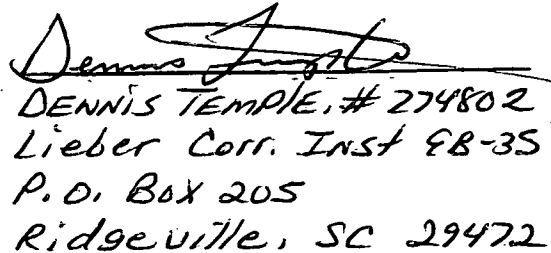 Dennis Temple
DENNIS TEMPLE, # 274802
Lieber Corr. Inst EB-35
P.O. BOX 205
Ridgeville, SC 29472